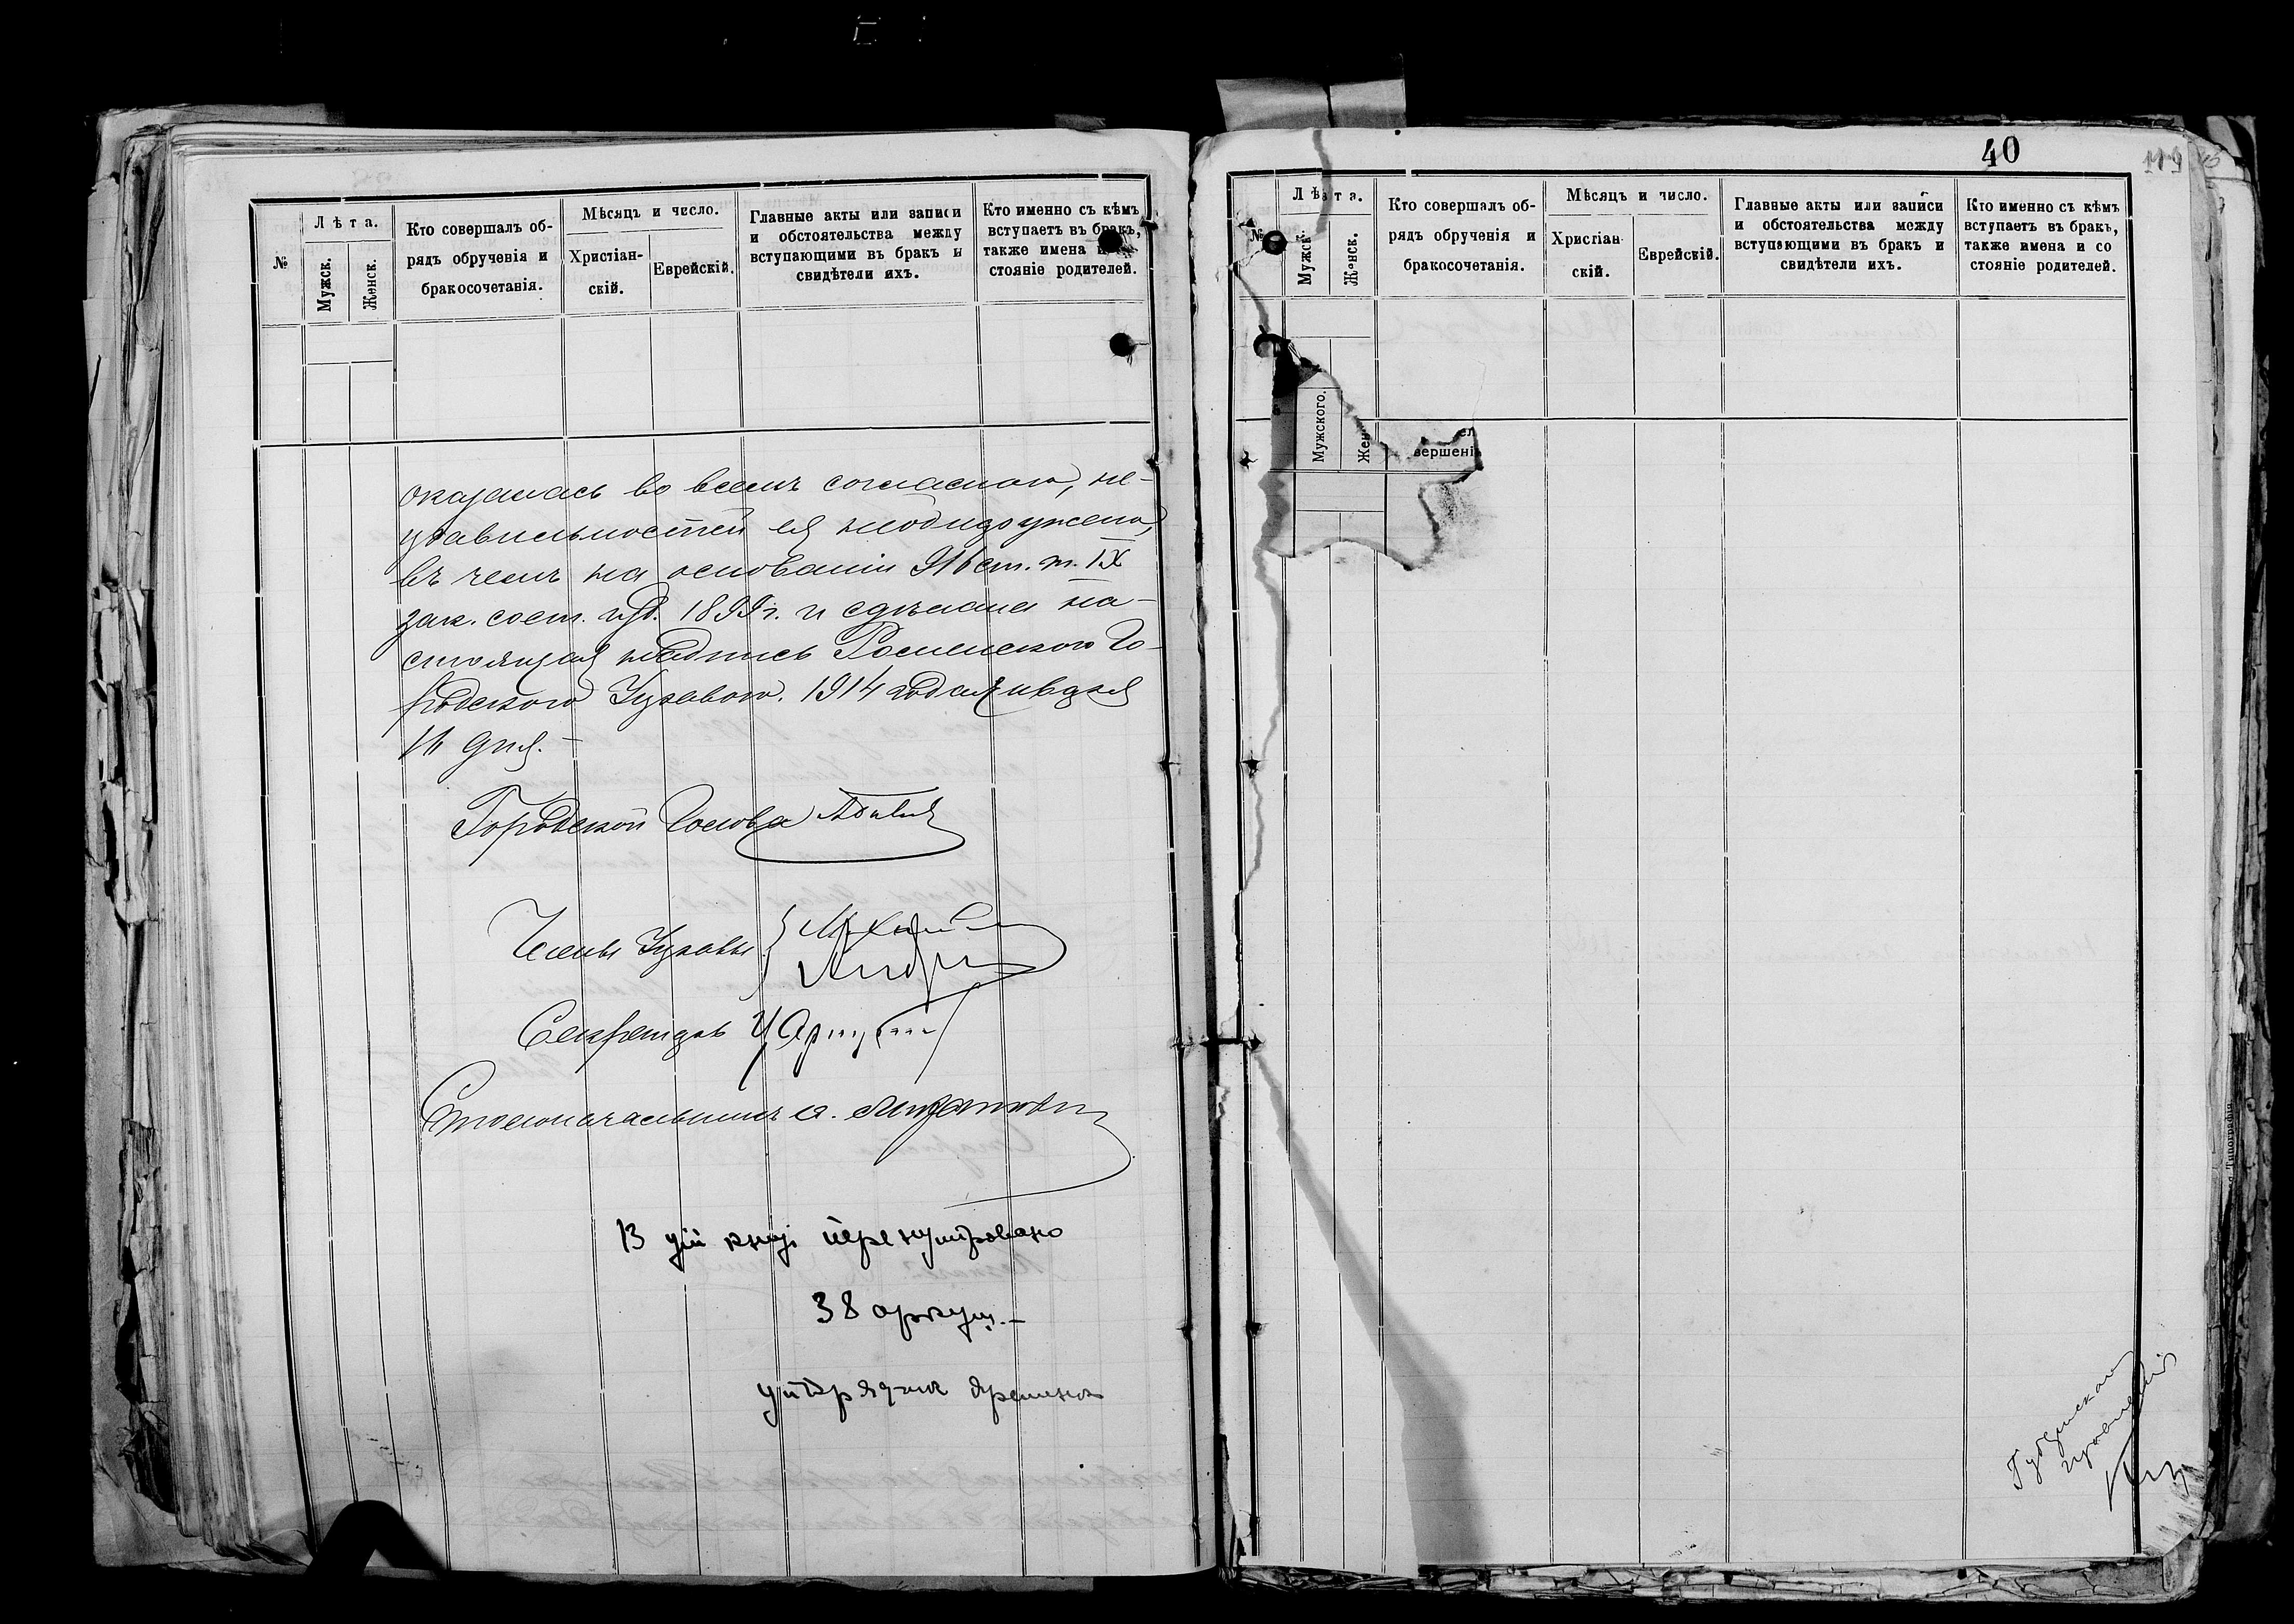 №
Лѣта.
Мужск.
Женск.
Кто совершалъ об-
рядъ обрученія и
бракосочетанія.
Мѣсяцъ и число.
Христіан-
скій.
Еврейскій.
Главные акты или записи
и обстоятельства между
вступающими въ бракъ и
свидѣтели ихъ.
Кто именно съ кѣмъ
вступаетъ въ бракъ,
также имена и со-
стояніе родителей.
оказалась во всемъ согласною, не-
правильностей ея необнаружено,
въ чемъ на основаніи 916 ст. т. IX
зак. сост. изд. 1899 г. и сдѣлана на-
стоящая надпись Роменскою Го-
родскою Управою. 1914 года января
16 дня.-
Городской Голова
Члены Управы
Секретарь
Столоначальникъ
В цій книзі перенумеровано
38 аркуш.-
40
119
№
Лѣта.
Мужск.
Женск.
Кто совершалъ об-
рядъ обрученія и
бракосочетанія.
Мѣсяцъ и число.
Христіан-
скій.
Еврейскій.
Главные акты или записи
и обстоятельства между
вступающими въ бракъ и
свидѣтели ихъ.
Кто именно съ кѣмъ
вступаетъ въ бракъ,
также имена и со
стояніе родителей.
Мужского.
Жен
вершені
Типографія